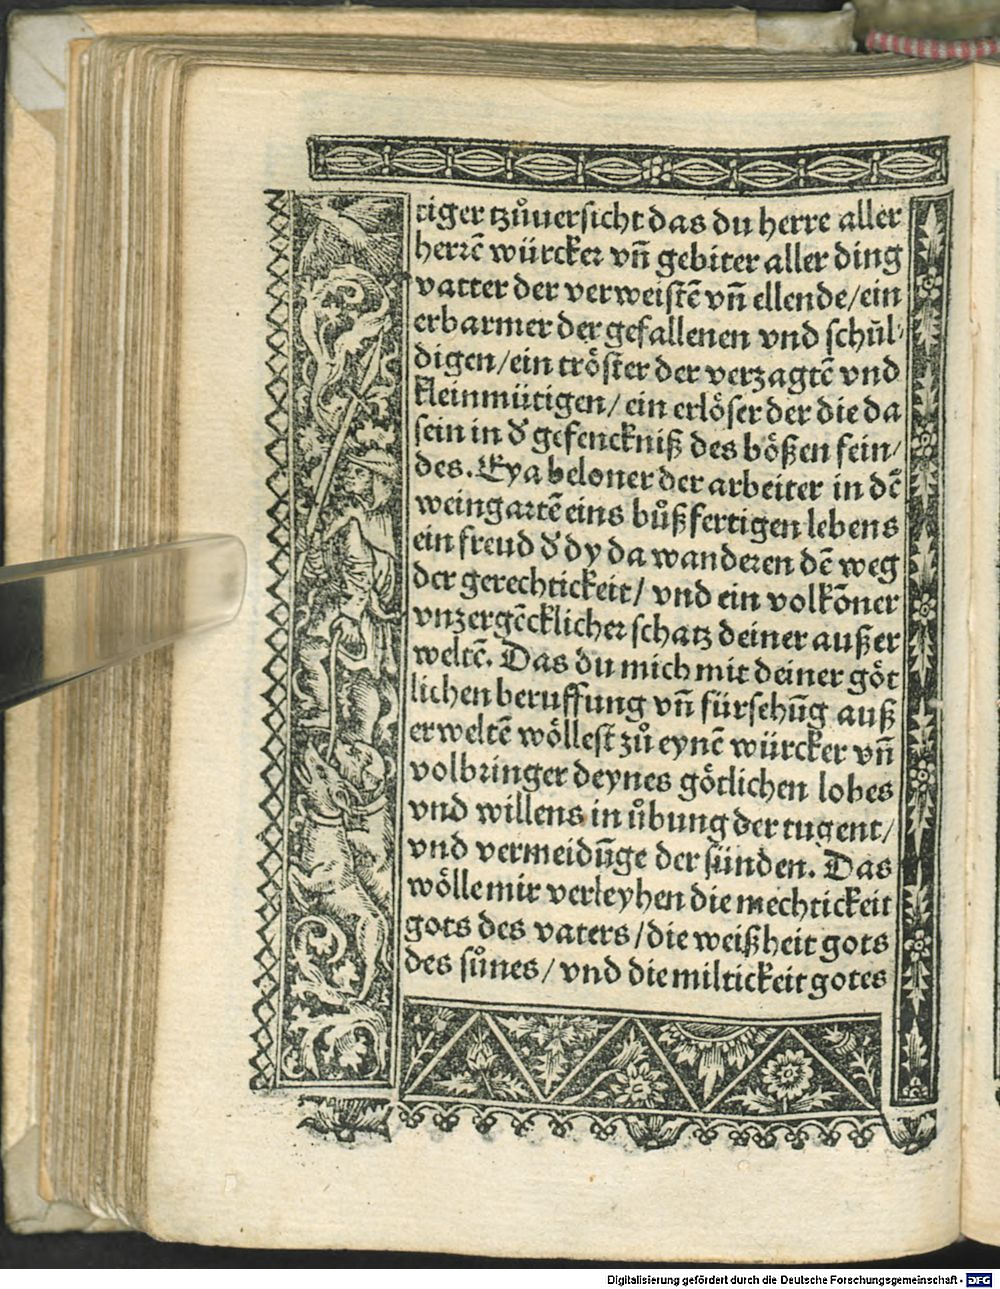 tiger tzůuersicht das du herre aller
herrē würcker vn̄ gebiter aller ding
vatter der verweistē vn̄ ellende/ein
erbarmer der gefallenen vnd schūl⸗
digen/ein tröster der verzagtē vnd
kleinmütigen/ein erlöser der die da
sein in d̕ gefenckniß des bößen fein/
des. Eya beloner der arbeiter in dē
weingartē eins bůßfertigen lebens
ein freud d̕ dy da wanderen dē weg
der gerechtickeit/ vnd ein volkōner
vnzergēcklicher schatz deiner außer
weltē. Das du mich mit deiner göt
lichen beruffung vn̄ fürsehūg auß
erweltē wöllest zů eynē würcker vn̄
volbringer deynes götlichen lobes
vnd willens in übung der tugent/
vnd vermeidūge der sünden. Das
wölle mir verleyhen die mechtickeit
gots des vaters/die weißheit gots
des sůnes/vnd die miltickeit gotes
Digitalisierung gefördert durch die Deutsche Forschungsgemeinschaft - DFG